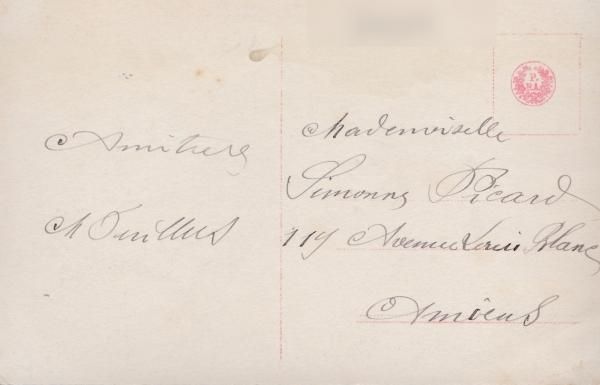 Amitiers
M Tuillus
Mademoiselle
Simonne Picard
119 Avenue Louis Blanc
Amiens
P.